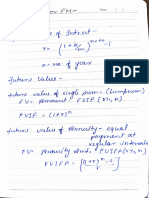 for FMn
of Interest -
r = (1 + k/m)^(n×m) - 1
n = no. of year
Future Value -
Future value of single sum - (lumpsum)
FV = Amount FVIF (r%, n)
FVIF = (1+r)^n
Future value of Annuity - equal
payment at
regular intervals
FV = Annuity Amt. FVIFA (r%, n)
FVIFA [(1+r)^n - 1